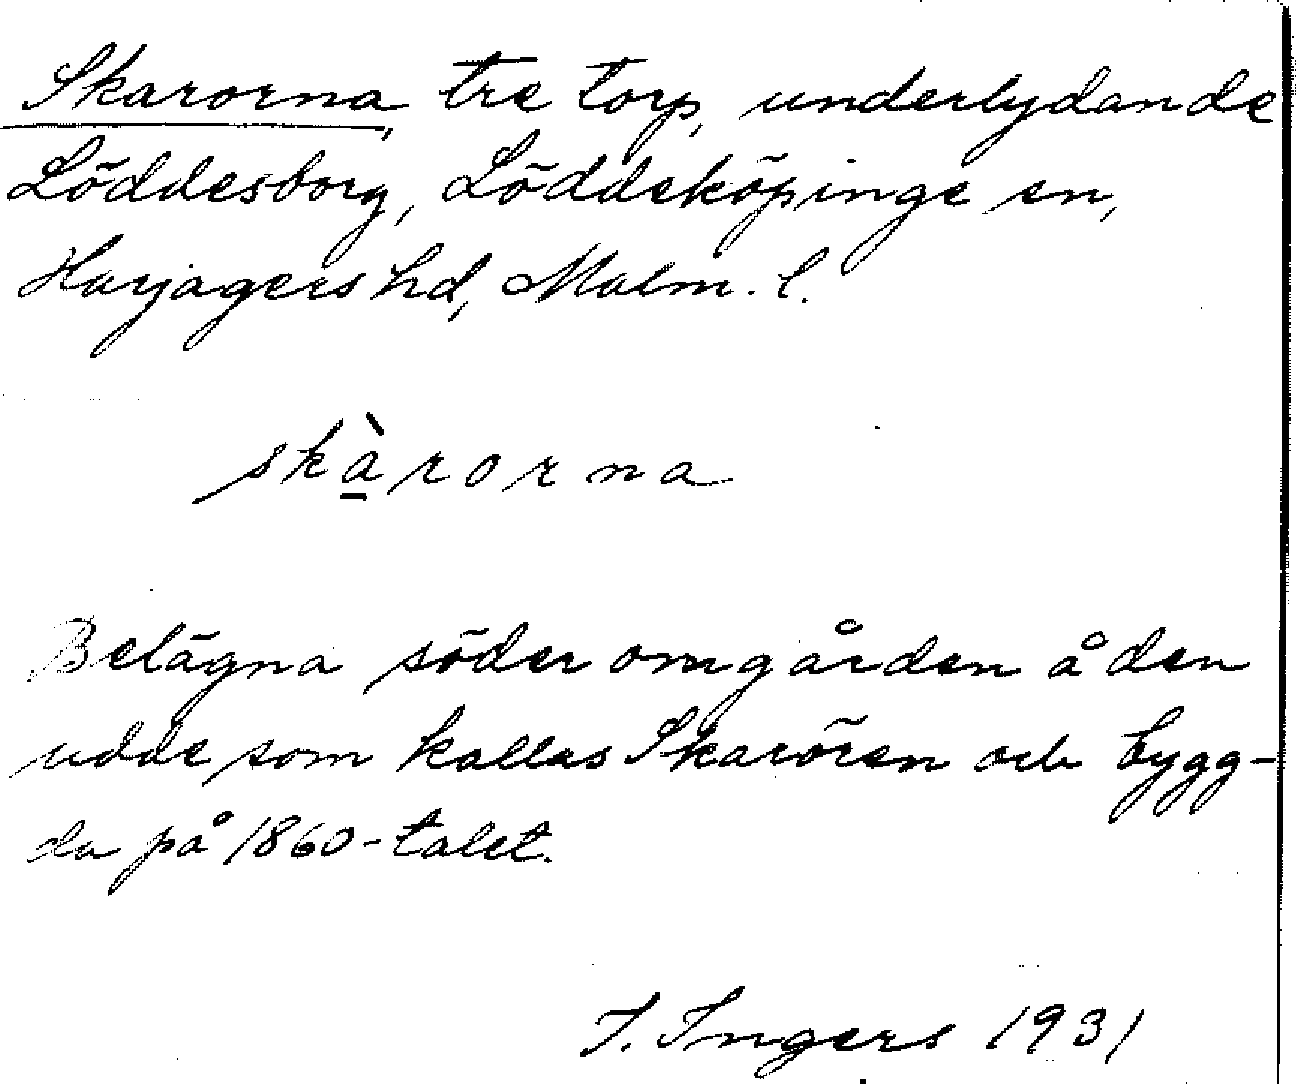 Skarorna, tre torp, underlydande
Löddesborg, Löddeköpinge sn,
Harjagers hd, Malm. l.
skà̱rorna
Belägna söder om gården å den
udde som kallas Skarören och bygg-
da på 1860-talet.
I. Ingers 1931